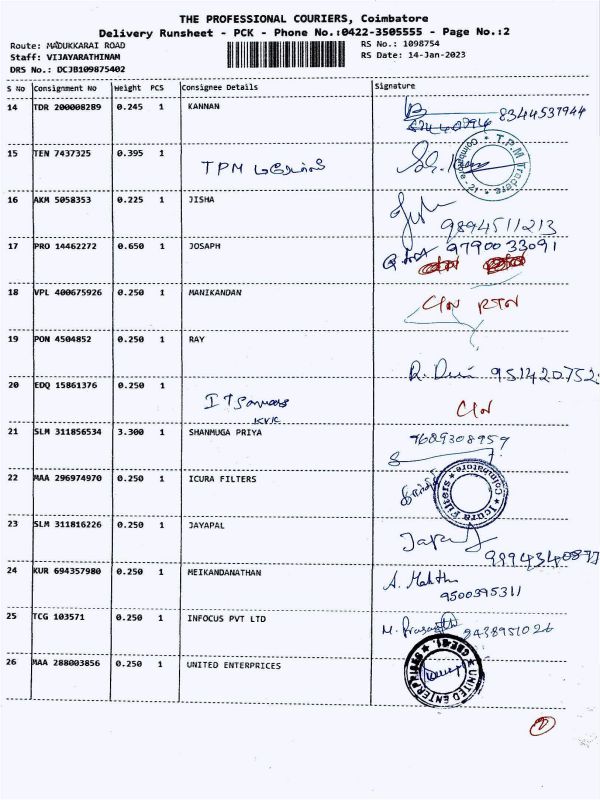 THE PROFESSIONAL COURIERS, Coimbatore
Delivery Runsheet - PCK - Phone No.:0422-3505555 - Page No.:2
Route: MADUKKARAI ROAD
Staff: VIJAYARATHINAM
DRS No.: DCJB109875402
RS No.: 1098754
RS Date: 14-Jan-2023
S No Consignment No Weight PCS Consignee Details Signature
14 TDR 200008289 0.245 1 KANNAN 8344537944
15 TEN 7437325 0.395 1 TPM
T.P.M Traders * Coimbatore - 21 *
16 AKM 5058353 0.225 1 JISHA 9894511213
17 PRO 14462272 0.650 1 JOSAPH 9790033091
18 VPL 400675926 0.250 1 MANIKANDAN CIN RTN
19 PON 4504852 0.250 1 RAY R. Devi 951420752
20 EDQ 15861376 0.250 1 CIN
KVK
21 SLM 311856534 3.300 1 SHANMUGA PRIYA 9689308959
22 MAA 296974970 0.250 1 ICURA FILTERS
Icura Filters * Coimbatore *
23 SLM 311816226 0.250 1 JAYAPAL
9894340877
24 KUR 694357980 0.250 1 MEIKANDANATHAN
9500395311
25 TCG 103571 0.250 1 INFOCUS PVT LTD M. Prasanth 9438951026
26 MAA 288003856 0.250 1 UNITED ENTERPRICES
UNITED ENTERPRISES * CBE-21 *
2